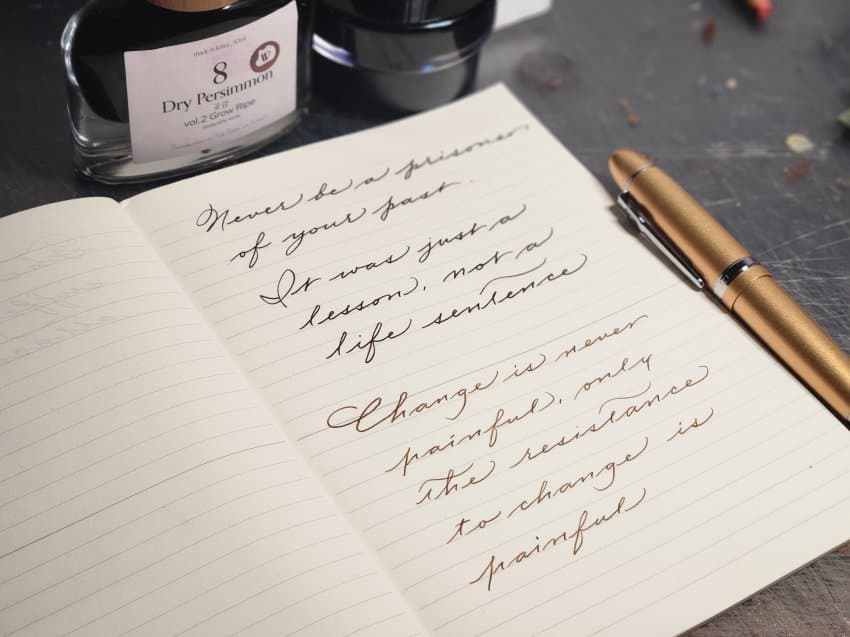 Made in Korea, 30ml
8
Dry Persimmon
곶감
vol.2 Grow Ripe
W
Never be a prisoner
of your past.
It was just a
lesson, not a
life sentence
Change is never
painful, only
the resistance
to change is
painful